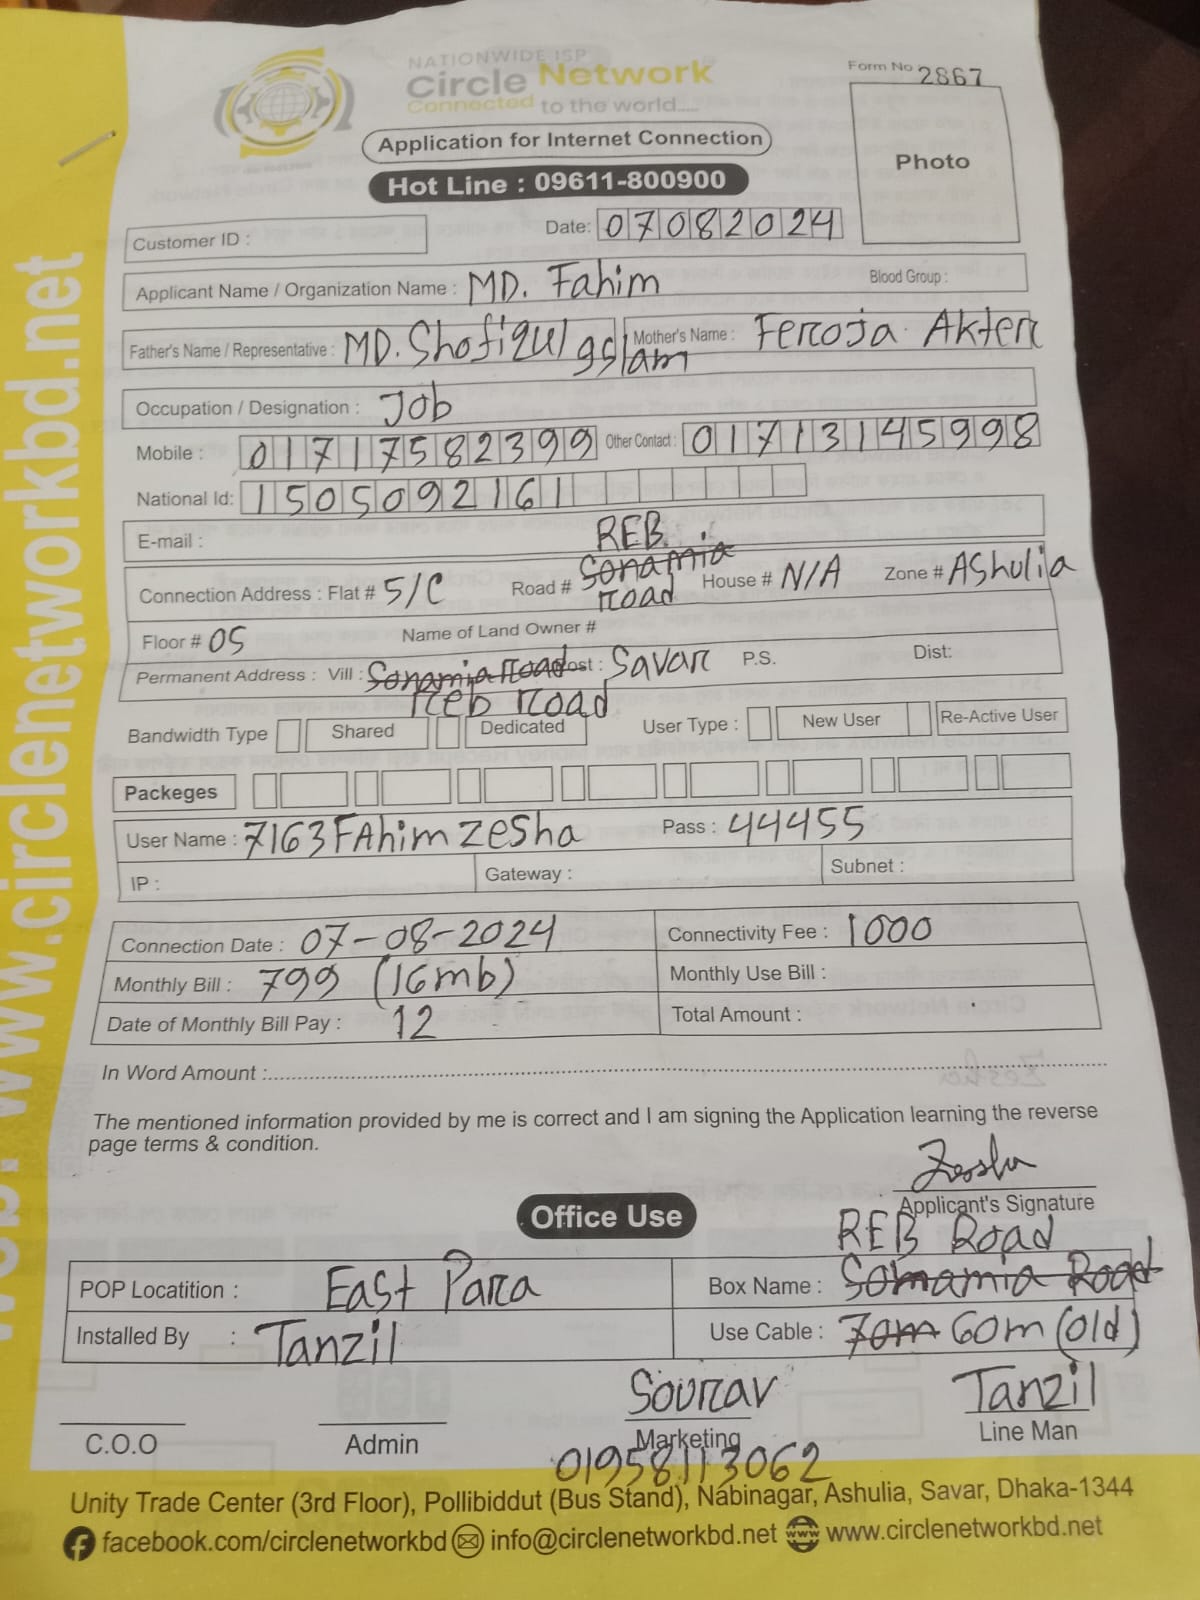 NATIONWIDE ISP
Circle Network
Connected to the world.....
Form No 2867
Application for Internet Connection
Photo
Hot Line : 09611-800900
Customer ID :
Date: 07082024
Applicant Name / Organization Name : MD. Fahim Blood Group :
Father's Name / Representative : MD. Shofiqul Islam Mother's Name : Feroja Akter
Occupation / Designation : Job
Mobile : 01717582399 Other Contact : 01713145998
National Id: 1505092161
E-mail :
REB
Connection Address : Flat # 5/C Road # Sonamia road House # N/A Zone # AShulia
Floor # 05 Name of Land Owner #
Permanent Address : Vill : Sonamia road Post : Savar P.S. Dist:
Reb road
Bandwidth Type Shared Dedicated User Type : New User Re-Active User
Packeges
User Name : 7163FAhimzesha Pass : 44455
IP : Gateway : Subnet :
Connection Date : 07-08-2024 Connectivity Fee : 1000
Monthly Bill : 799 (16mb) Monthly Use Bill :
Date of Monthly Bill Pay : 12 Total Amount :
In Word Amount :
The mentioned information provided by me is correct and I am signing the Application learning the reverse
page terms & condition.
Zesha
Applicant's Signature
Office Use
REB Road
POP Locatition : East Para Box Name : Somamia Road
Installed By : Tanzil Use Cable : 70m 60m (old)
Sourav Tanzil
C.O.O Admin Marketing Line Man
01958113062
Unity Trade Center (3rd Floor), Pollibiddut (Bus Stand), Nabinagar, Ashulia, Savar, Dhaka-1344
facebook.com/circlenetworkbd info@circlenetworkbd.net www.circlenetworkbd.net
www.circlenetworkbd.net